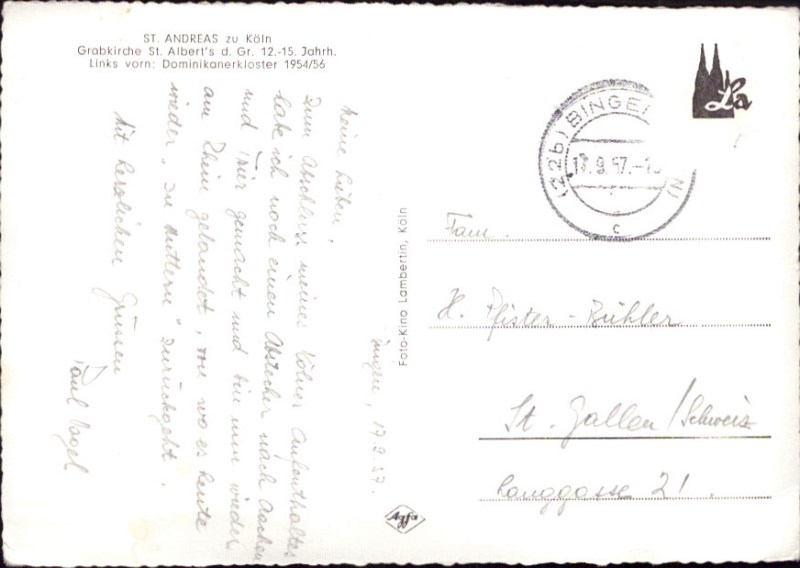 ST. ANDREAS zu Köln
Grabkirche St. Albert's d. Gr. 12.-15. Jahrh.
Links vorn: Dominikanerkloster 1954/56
Bingen, 17.9.57.
Meine Lieben,
Zum Abschluss meines Kölner Aufenthaltes
habe ich noch einen Abstecher nach Aachen
und Trier gemacht und bin nun wieder
am Rhein gelandet, von wo es heute
wieder "zu Muttern" zurückgeht.
Mit herzlichen Grüssen
Paul Vogel
Foto-Kino Lambertin, Köln
Agfa
La
(22b) BINGE
9.57.-1
N)
c
Fam.
H. Pfister-Bühler
St. Gallen/Schweiz
Langgasse 21.